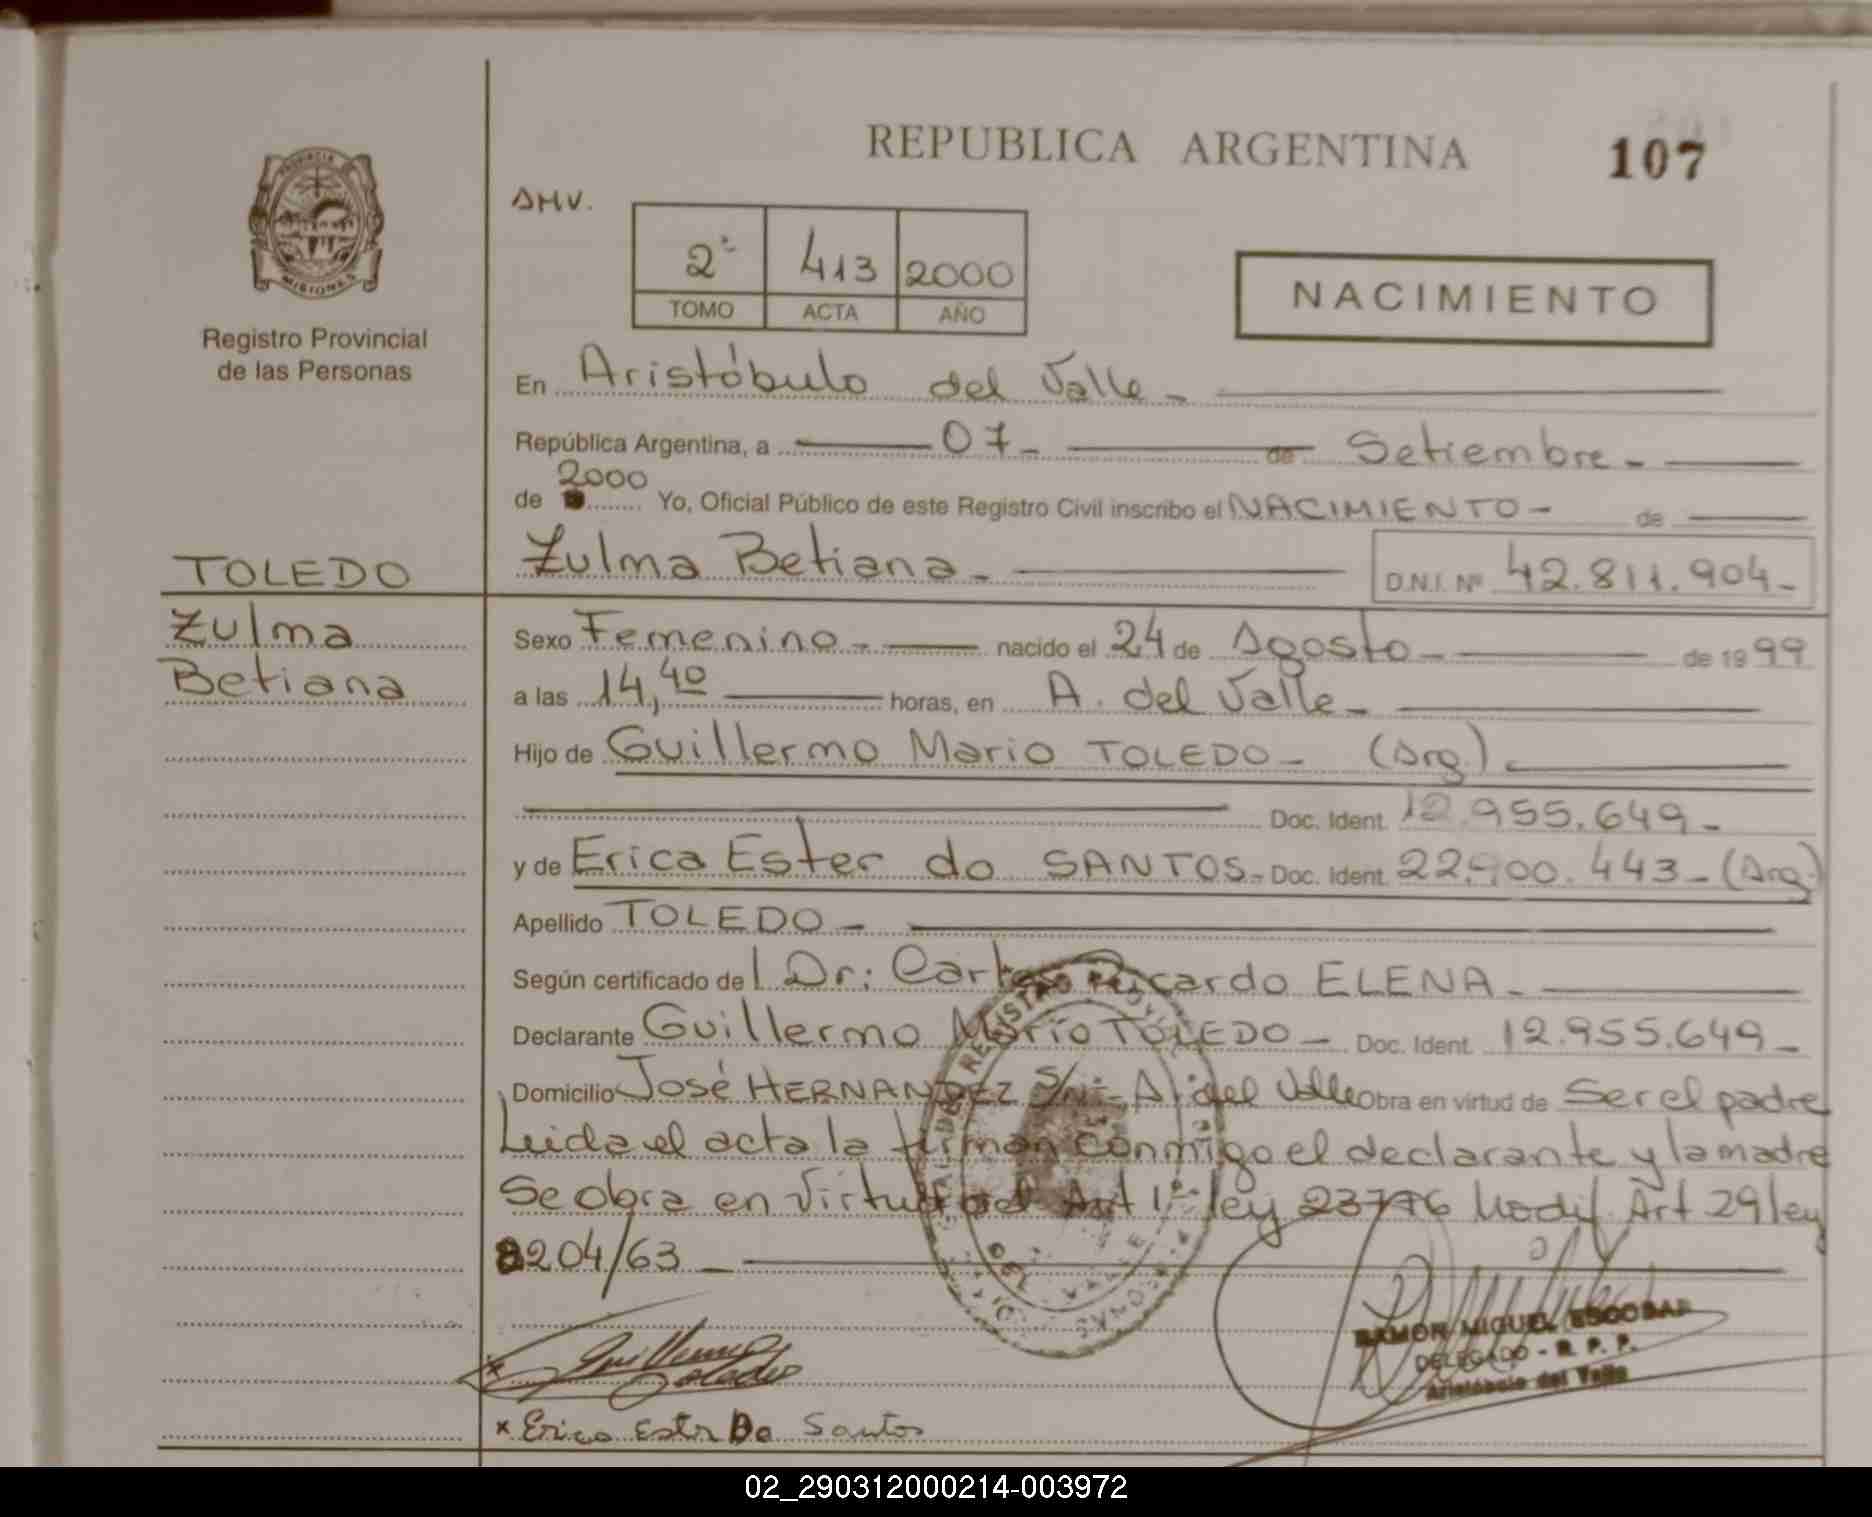 REPUBLICA ARGENTINA
107
PROVINCIA
MISIONES
Registro Provincial
de las Personas
AHV.
2º 413 2000
TOMO ACTA AÑO
NACIMIENTO
En Aristóbulo del Valle -
República Argentina, a 07- de Setiembre -
de 2000 Yo, Oficial Público de este Registro Civil inscribo el NACIMIENTO - de
Zulma Betiana - D.N.I. Nº 42.811.904-
TOLEDO
Zulma
Betiana
Sexo Femenino - nacido el 24 de Agosto - de 1999
a las 14,40 horas, en A. del Valle -
Hijo de Guillermo Mario TOLEDO - (Arg.)
Doc. Ident. 12.955.649-
y de Erica Ester do SANTOS- Doc. Ident. 22.900.443- (Arg.)
Apellido TOLEDO -
Según certificado del Dr: Carlos Ricardo ELENA -
Declarante Guillermo Mario TOLEDO - Doc. Ident. 12.955.649-
Domicilio José HERNANDEZ S/Nº- A. del Valle Obra en virtud de Ser el padre
Leida el acta la firman conmigo el declarante y la madre
Se obra en Virtud del Art 1º ley 23776 Modif. Art 29 ley
8204/63 -
x Guillermo Toledo
x Erica Estr Do Santos
RAMON MIGUEL ESCOBAR
DELEGADO - R. P. P.
Aristóbulo del Valle
02_290312000214-003972